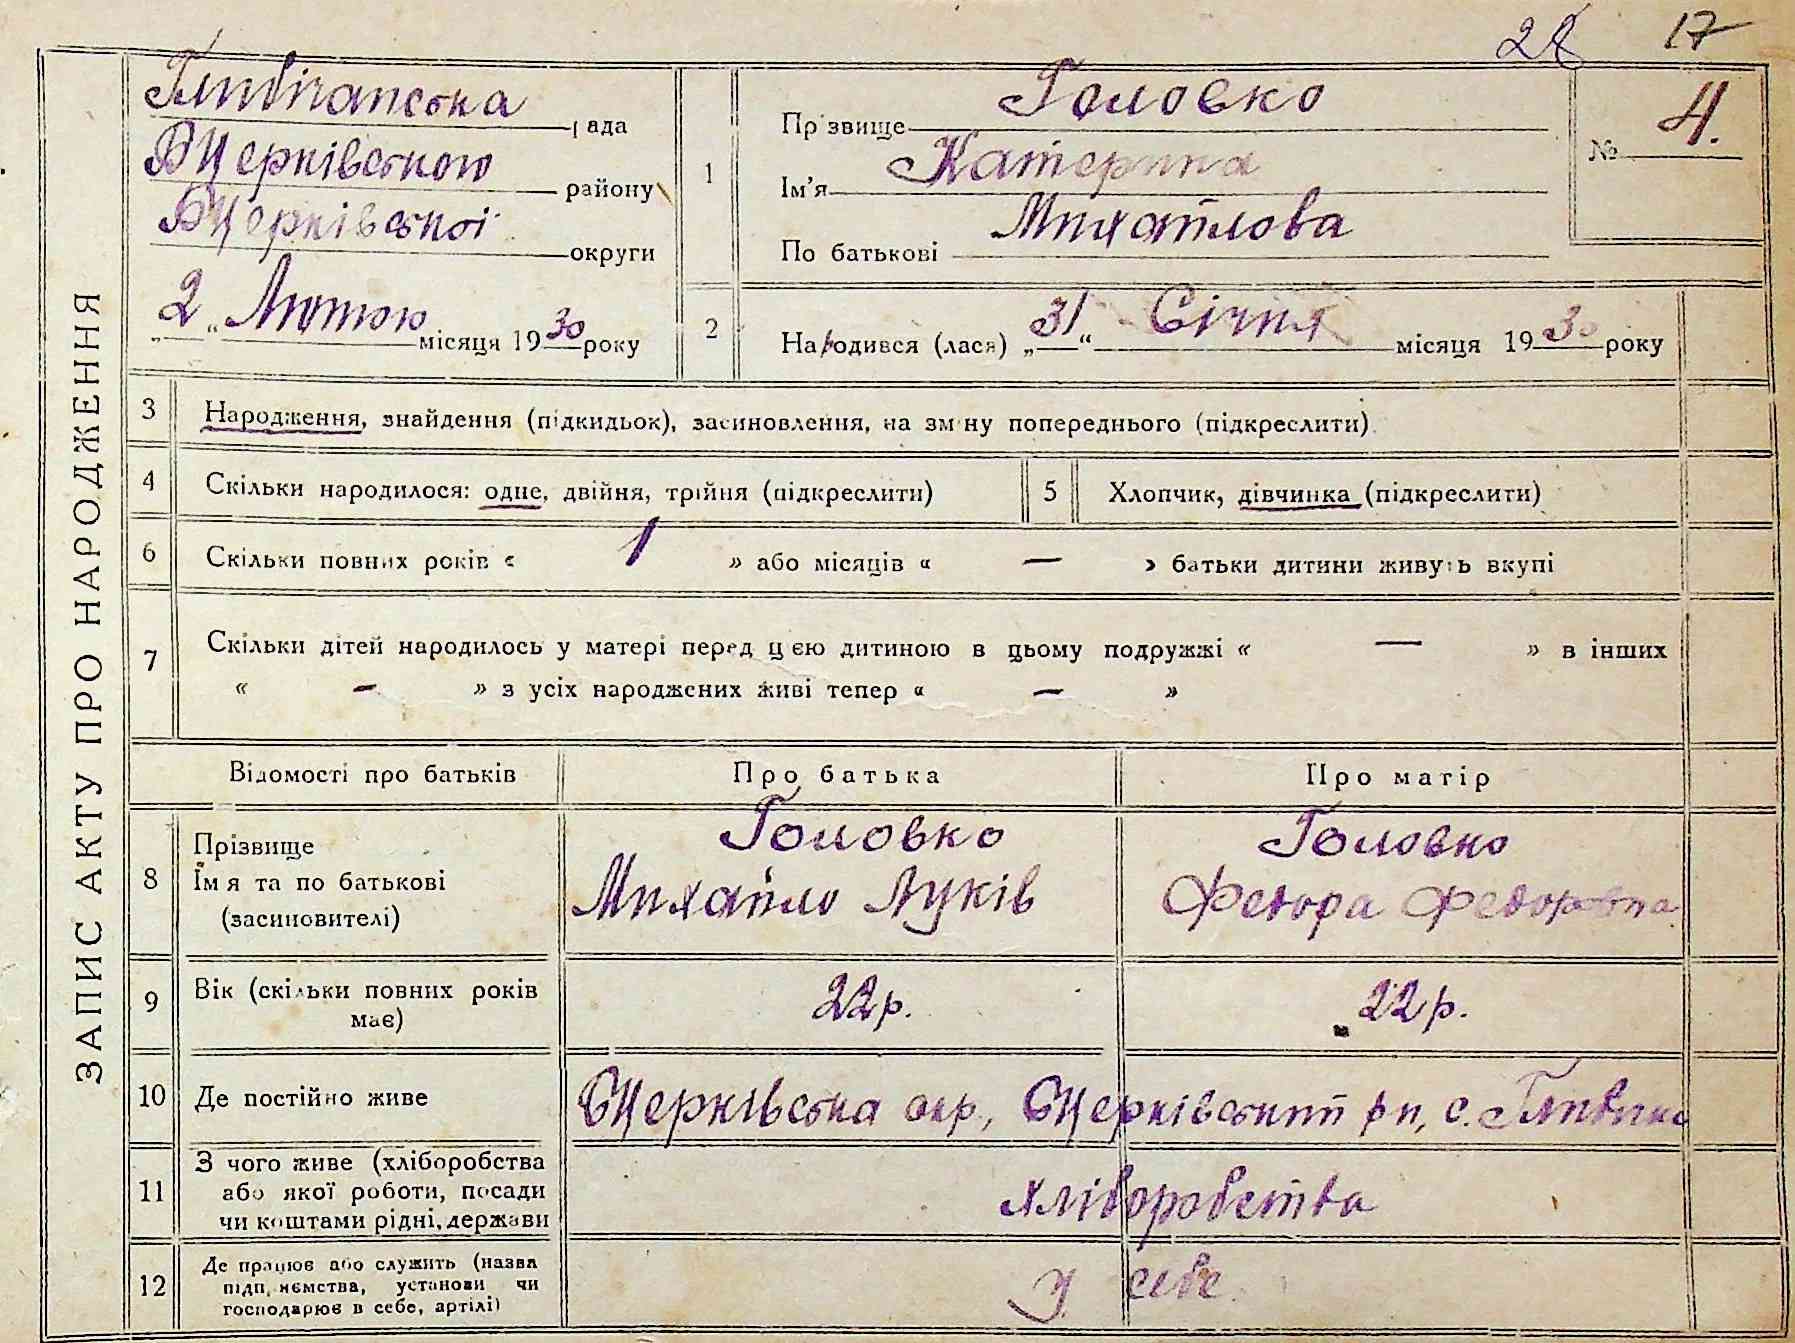 22 17
ЗАПИС АКТУ ПРО НАРОДЖЕННЯ
Глибічанська рада
БЦерківського району
БЦерківської округи
„2“ Лютого місяця 1930 року
1
Прізвище Головко
Ім'я Катерина
По батькові Михайлова
№ 4.
2 Народився (лася) „31“ Січня місяця 1930 року
3 Народження, знайдення (підкидьок), засиновлення, на зміну попереднього (підкреслити)
4 Скільки народилося: одне, двійня, трійня (підкреслити)
5 Хлопчик, дівчинка (підкреслити)
6 Скільки повних років « 1 » або місяців « — » батьки дитини живуть вкупі
7 Скільки дітей народилось у матері перед цією дитиною в цьому подружжі « — » в інших
« — » з усіх народжених живі тепер « — »
Відомості про батьків Про батька Про матір
8 Прізвище
Їм я та по батькові
(засиновителі)
Головко
Михайло Луків
Головко
Федора Федоровна
9 Вік (скільки повних років
має)
22 р. 22 р.
10 Де постійно живе БЦерківська окр., БЦерківський рн, с.
11 З чого живе (хліборобства
або якої роботи, посади
чи коштами рідні, держави
хліборобства
12 Де працює або служить (назва
підприємства, установи чи
господарює в себе, артілі)
у себе.